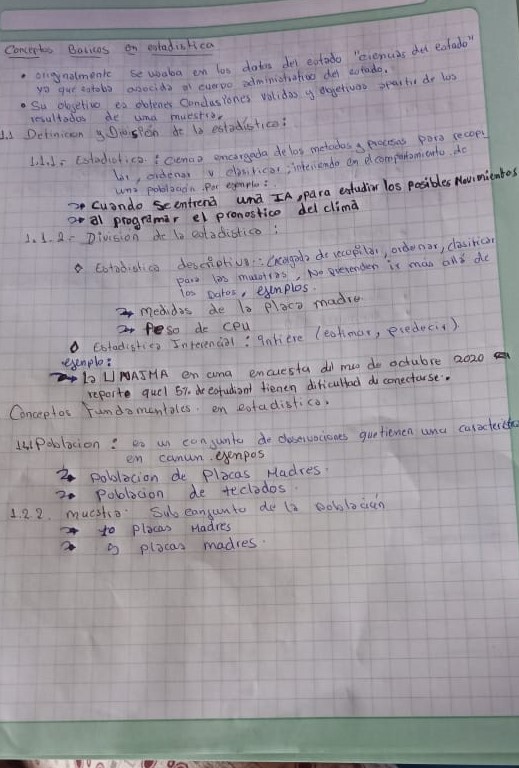 Conceptos Basicos en estadistica
• originalmente se usaba en los datos del estado "ciencias del estado"
ya que estaba asociada al cuerpo administrativo del estado.
• Su objetivo es obtener Conclusiones validas y objetivas apartir de los
resultados de una muestra.
1.1 Definicion y Division de la estadistica:
1.1.1- Estadistica: ciencia encargada de los metodos y procesos para recopi
lar, ordenar y clasificar, interiendo en el comportamiento de
una poblacion. Por ejemplo:
→ Cuando Se entrena una IA, para estudiar los posibles Movimientos
→ al programar el pronostico del clima
1.1.2- Division de la estadistica:
◊ Estadistica descriptiva: Encargada de recopilar, ordenar, clasificar
para las muestras, No pretenden ir más allá de
los Datos, ejenplos.
→ medidas de la placa madre.
→ Peso de CPU
◊ Estadistica Inferencial: infiere (estimar, predecir)
ejenplo:
→ La UNAJMA en una encuesta del mes de octubre 2020
reporto que el 5% de estudiant tienen dificultad de conectarse.
Conceptos fundamentales en estadistica.
Poblacion: es un conjunto de observaciones que tienen una caracteristi
en camun. ejenpos
→ Poblacion de Placas Madres.
→ Poblacion de teclados.
1.2.2. muestra: Sub conjunto de la poblacián
→ 10 Placas Madres
→ 5 placas madres.